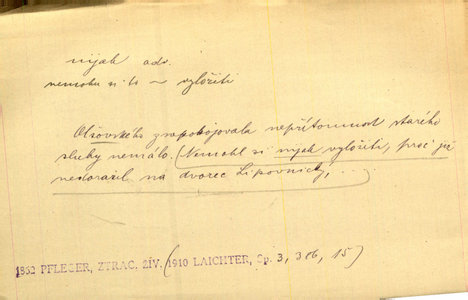 nijak adv.
nemohu si to ~ vyložiti
Olšovského znepokojovala nepřítomnost starého
sluhy nemálo. (Nemohl si nijak vyložiti, proč již
nedorazil na dvorec Lipovnický, ...
1862 PFLEGER, ZTRAC. ŽIV. (1910 LAICHTER, Sp. 3, 386, 15)